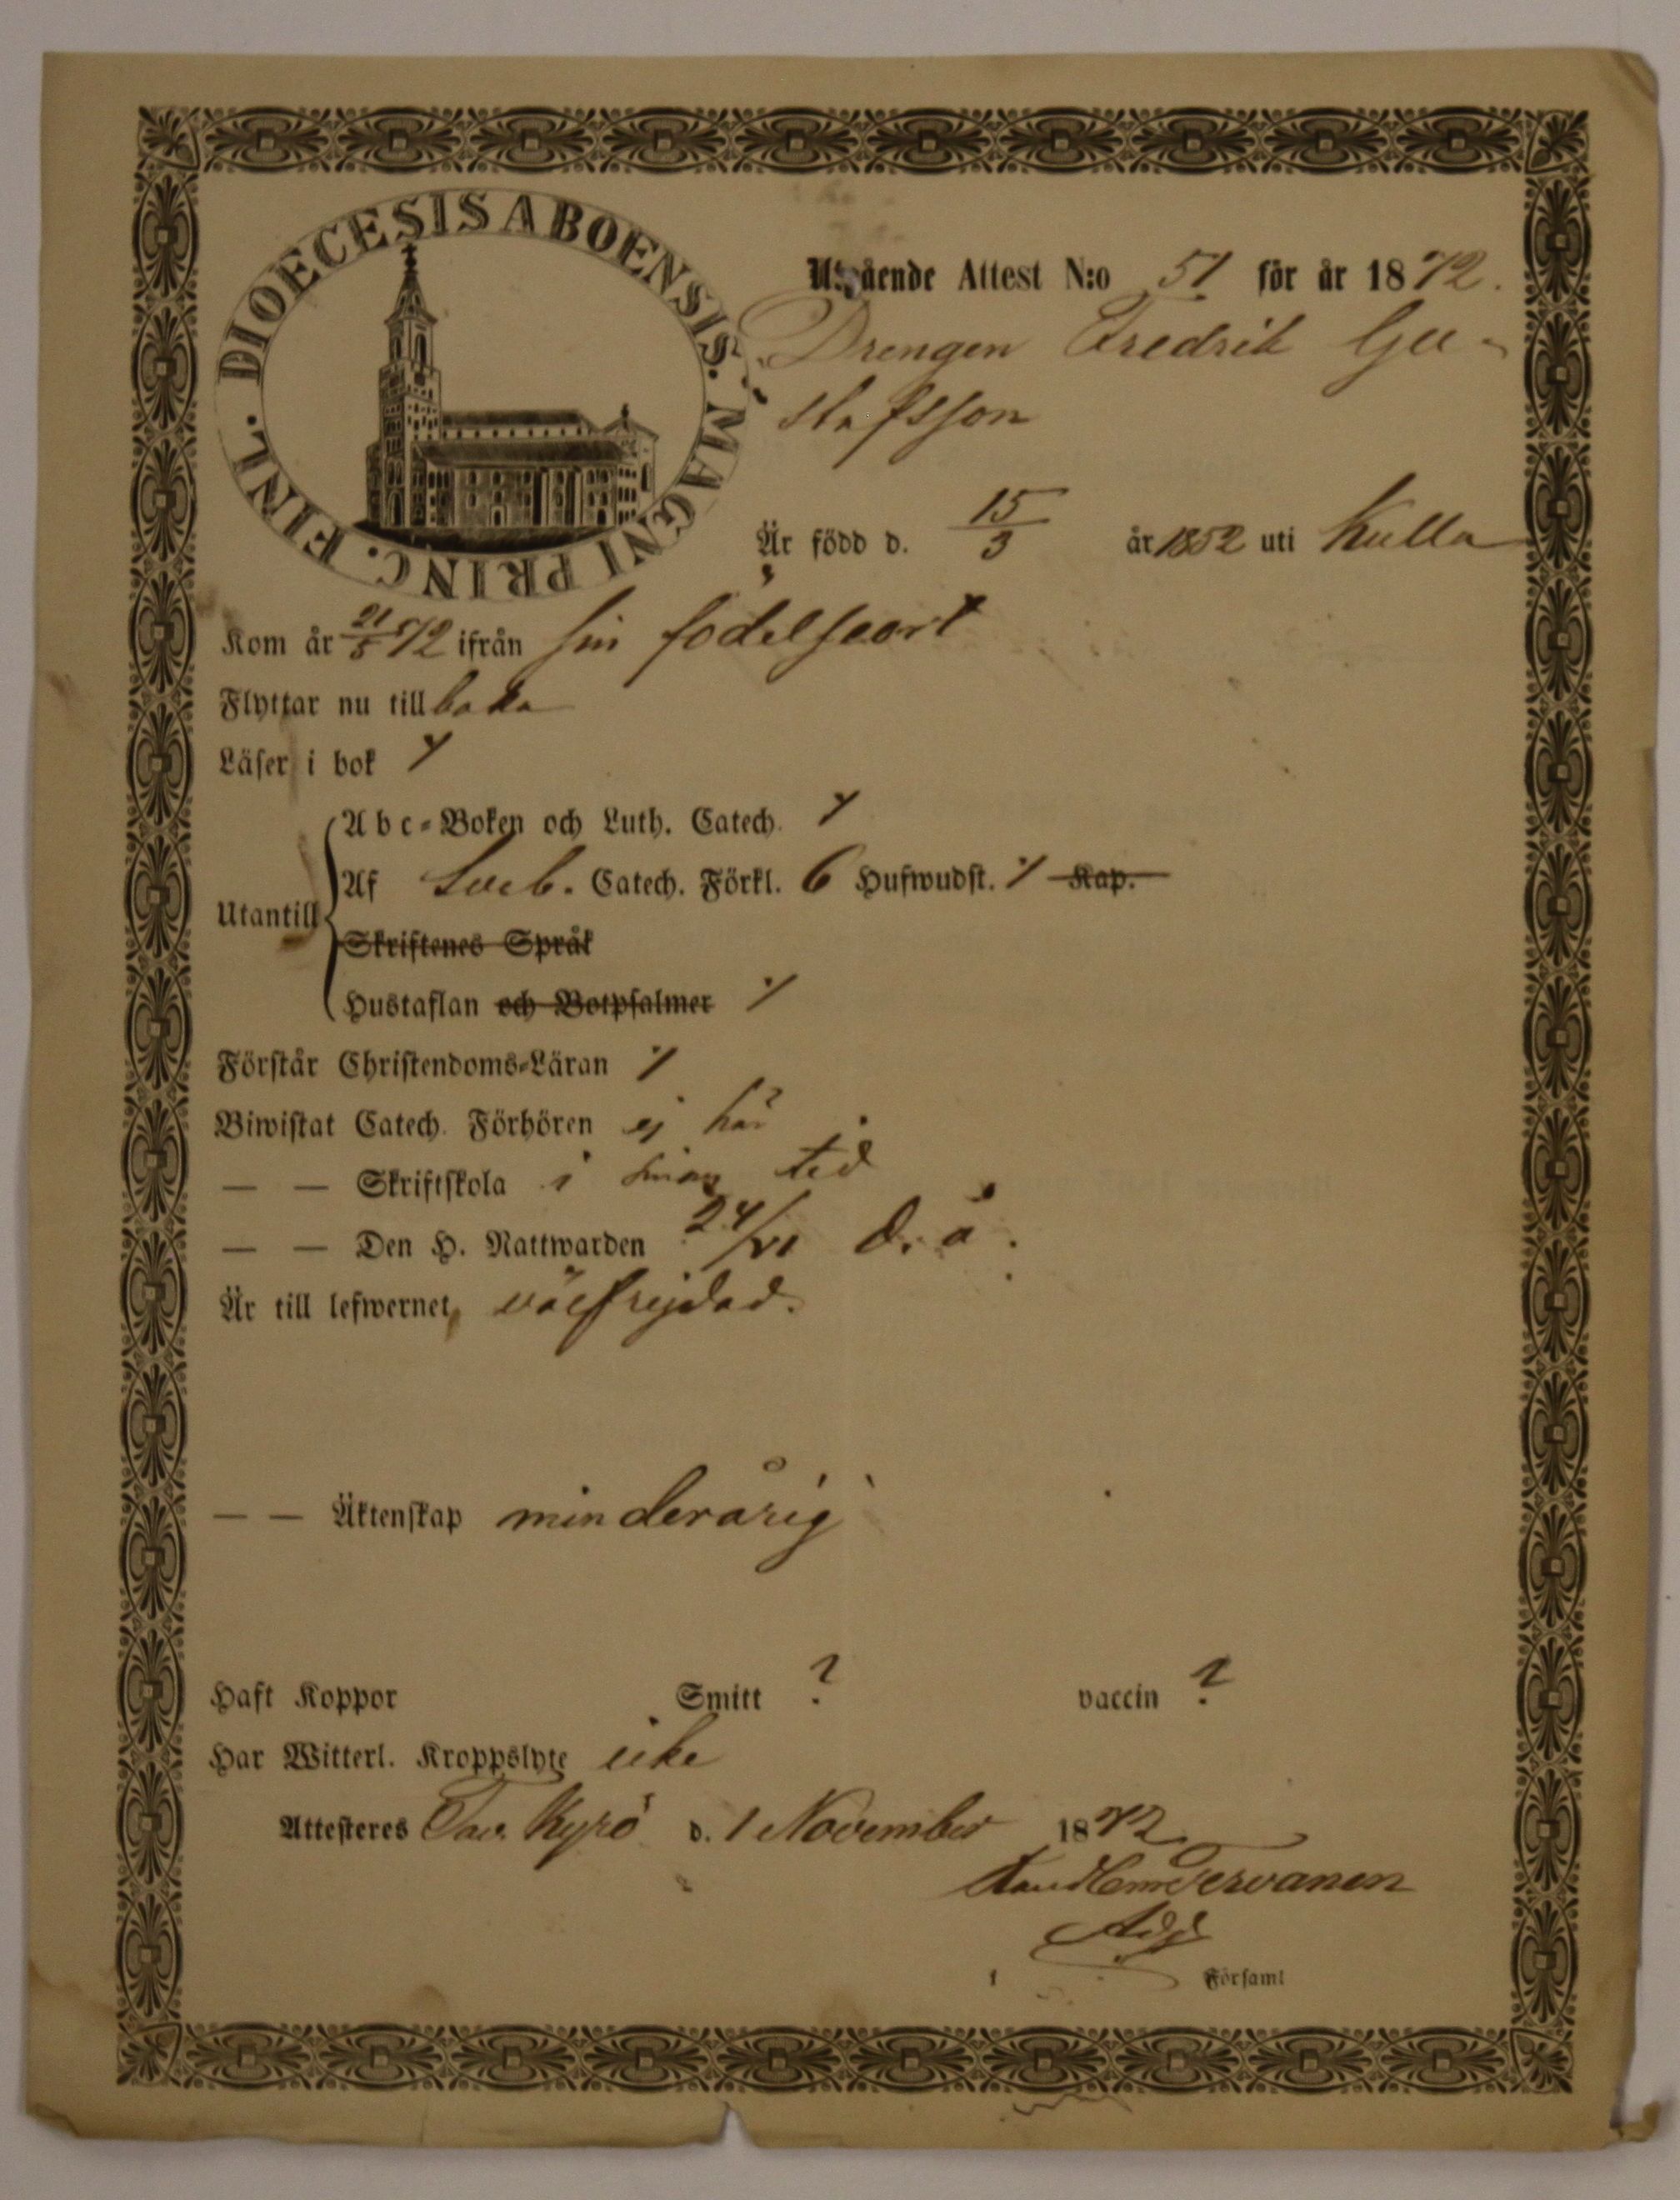 DIOECESIS ABOENSIS. MAGNI PRINC. FINL.
Utgående Attest N:o 51 för år 1872.
Drengen Fredrik Gu-
stafsson
Är född d. 15/3 år 1852 uti Kulla
Kom år 21/5 72 ifrån sin födelseort
Flyttar nu till baka
Läser i bok
Abc-Boken och Luth. Catech.
Utantill
Af Sveb. Catech. Förkl. 6 Hufwudst. Kap.
Skriftenes Språk
Hustaflan och Botpsalmer
Förstår Christendoms-Läran
Biwistat Catech. Förhören ej här
— — Skriftskola i sinom tid
— — Den H. Nattwarden 24/VI d. å.
Är till lefwernet välfrejdad.
— — Äktenskap minderårig
Haft Koppor Smitt ? vaccin ?
Har Witterl. Kroppslyte icke
Attesteres Tav. Kyrö d. 1 November 1872
Tervanen
Adj
i Församl